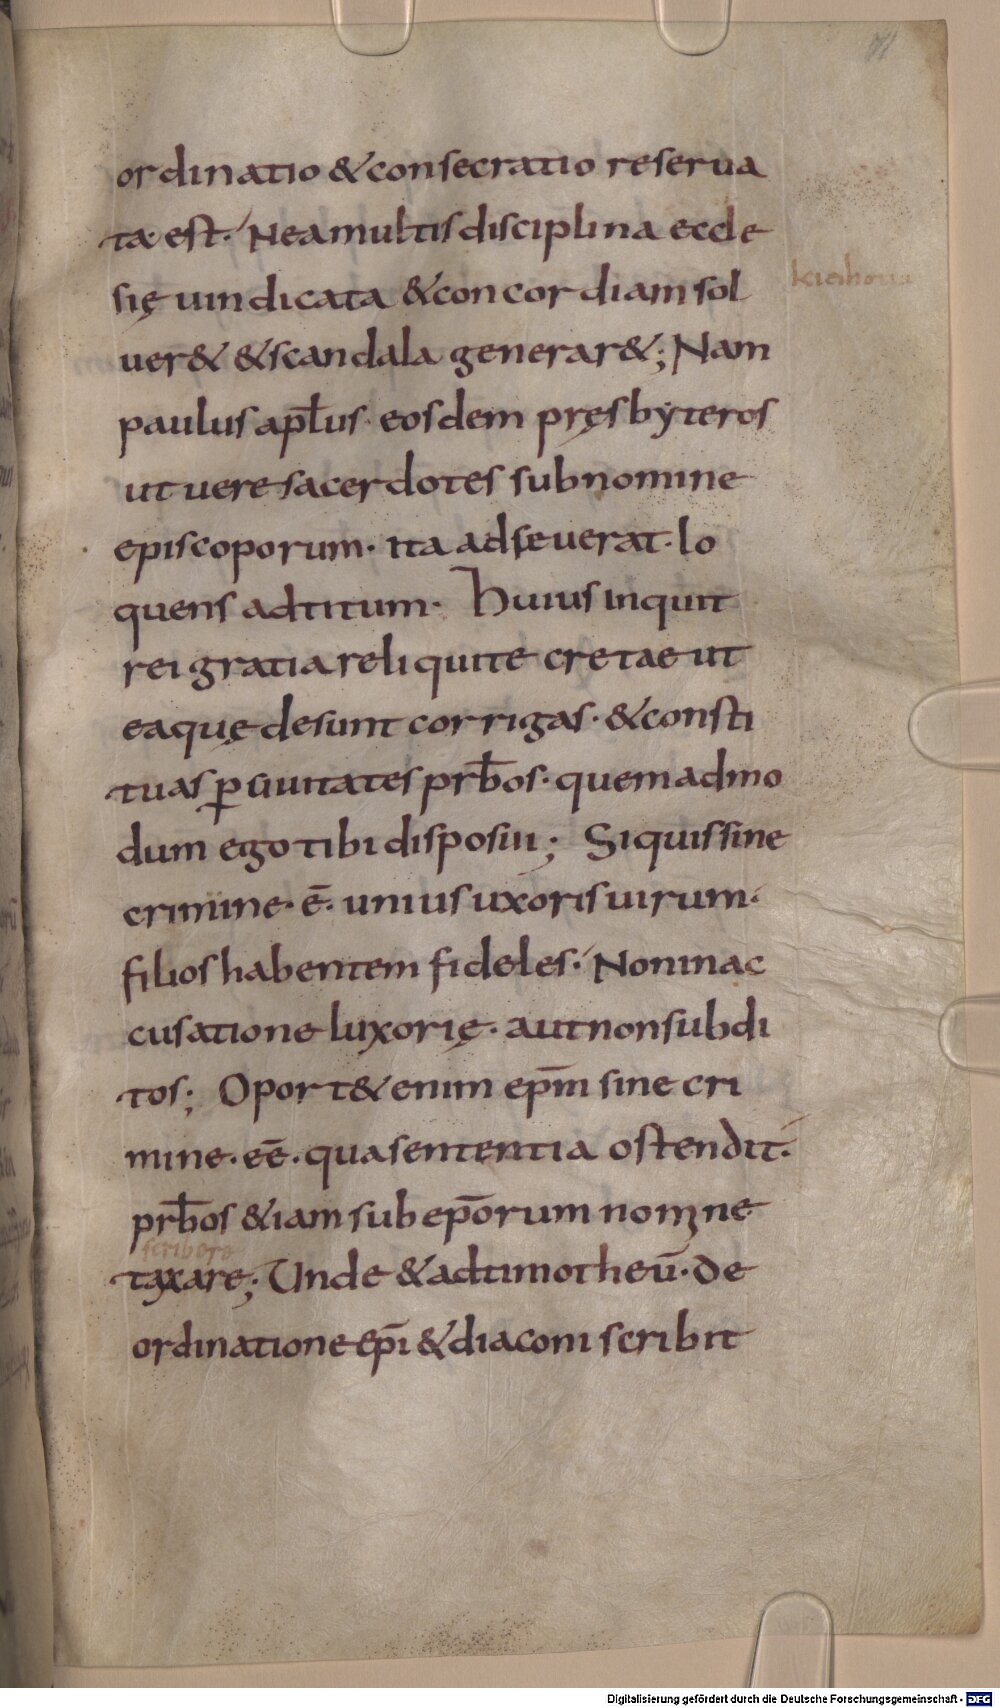 71
ordinatio & consecratio reserua
ta est. Ne a multis disciplina eccle
się uindicata & concordiam sol
uer& & scandala generar&; Nam
paulus apl̄us. eosdem pręsbyteros
ut uere sacerdotes sub nomine
episcoporum. ita adseuerat. lo
quens ad titum. Huius inquit
rei gratia reliqui te cretae ut
ea quę desunt corrigas. & consti
tuas p̱ ciuitates prb̄os. quemadmo
dum ego tibi disposui; Si quis sine
crimine. ē. unius uxoris uirum.
filios habentem fideles. Non in ac
cusatione luxorię. aut non subdi
tos; Oport& enim ep̄m sine cri
mine. eē. qua sententia ostendit.
prb̄os &iam sub ep̄orum nomine
scribere
taxare; Unde & ad timotheū. de
ordinatione ep̄i & diaconi scribit
Digitalisierung gefördert durch die Deutsche Forschungsgemeinschaft - DFG